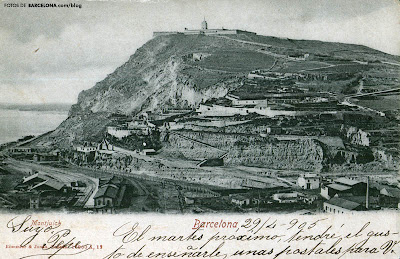 FOTOS DE BARCELONA.com/blog
Montjuich
Barcelona 29/4-905
Suyo
Pepe
El martes próximo, tendré el gus-
to de enseñarle, unas postales para V.